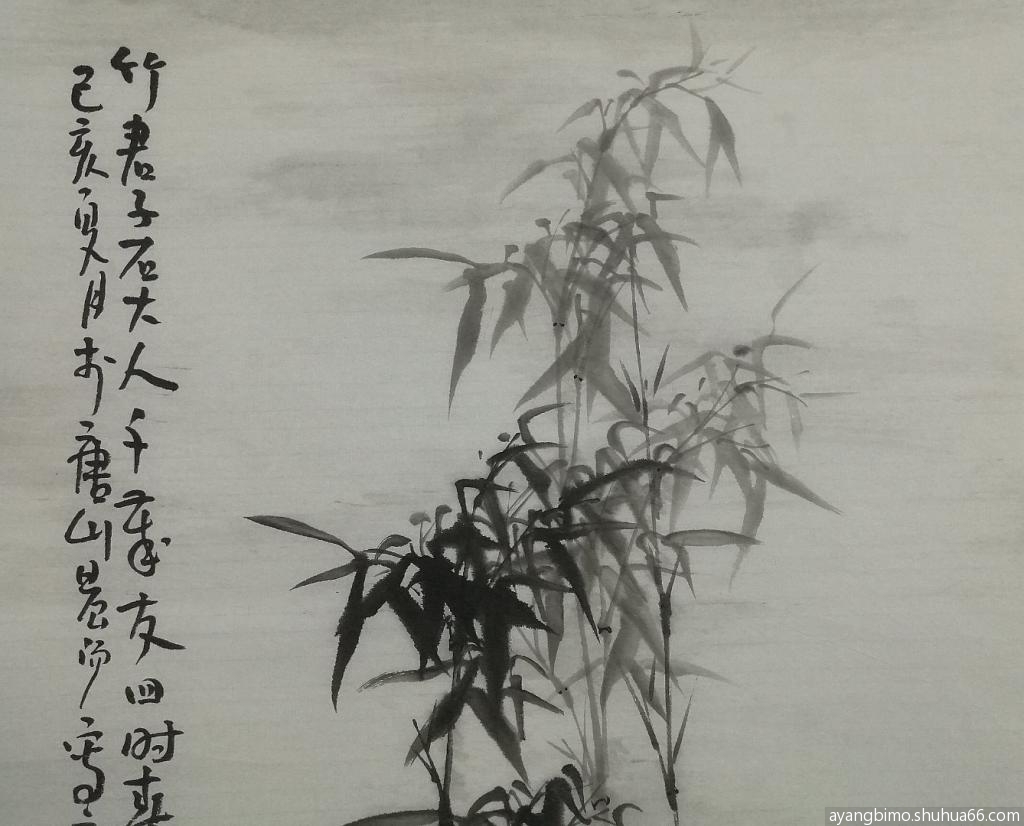 竹君子石大人千歲友四時春
己亥夏月於唐山晨陽寫
ayangbimo.shuhua66.com